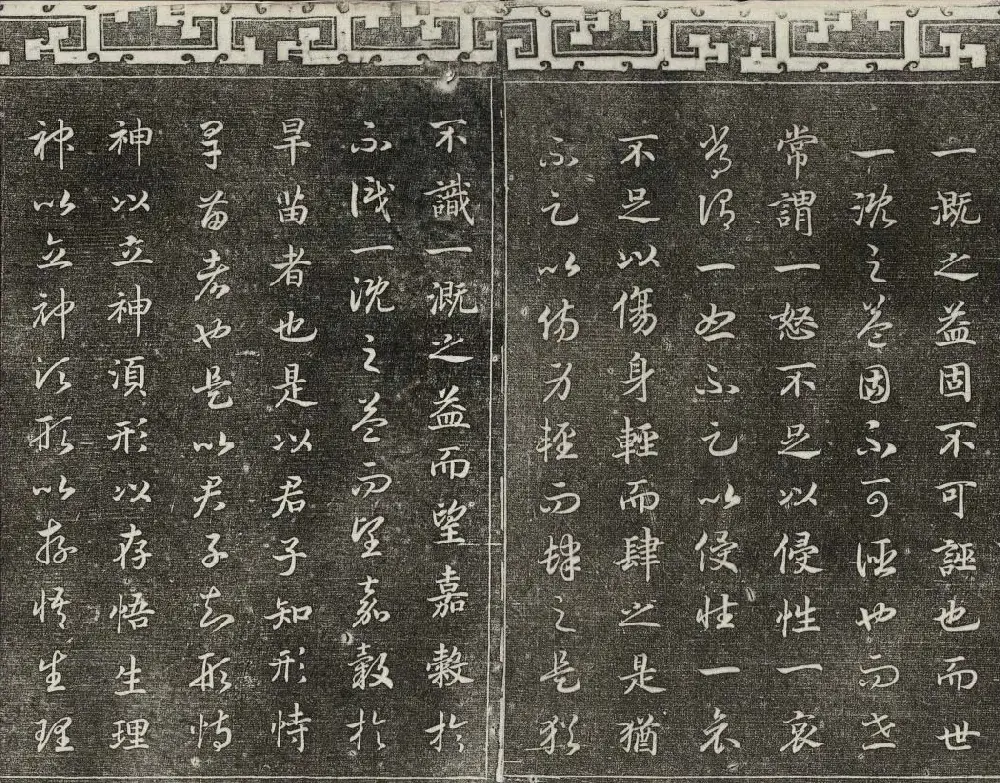 一溉之益固不可誣也而世
一溉之益固不可誣也而世
常謂一怒不足以侵性一哀
常謂一怒不足以侵性一哀
不足以傷身輕而肆之是猶
不足以傷身輕而肆之是猶
不識一溉之益而望嘉穀於
不識一溉之益而望嘉穀於
旱苗者也是以君子知形恃
旱苗者也是以君子知形恃
神以立神須形以存悟生理
神以立神須形以存悟生理